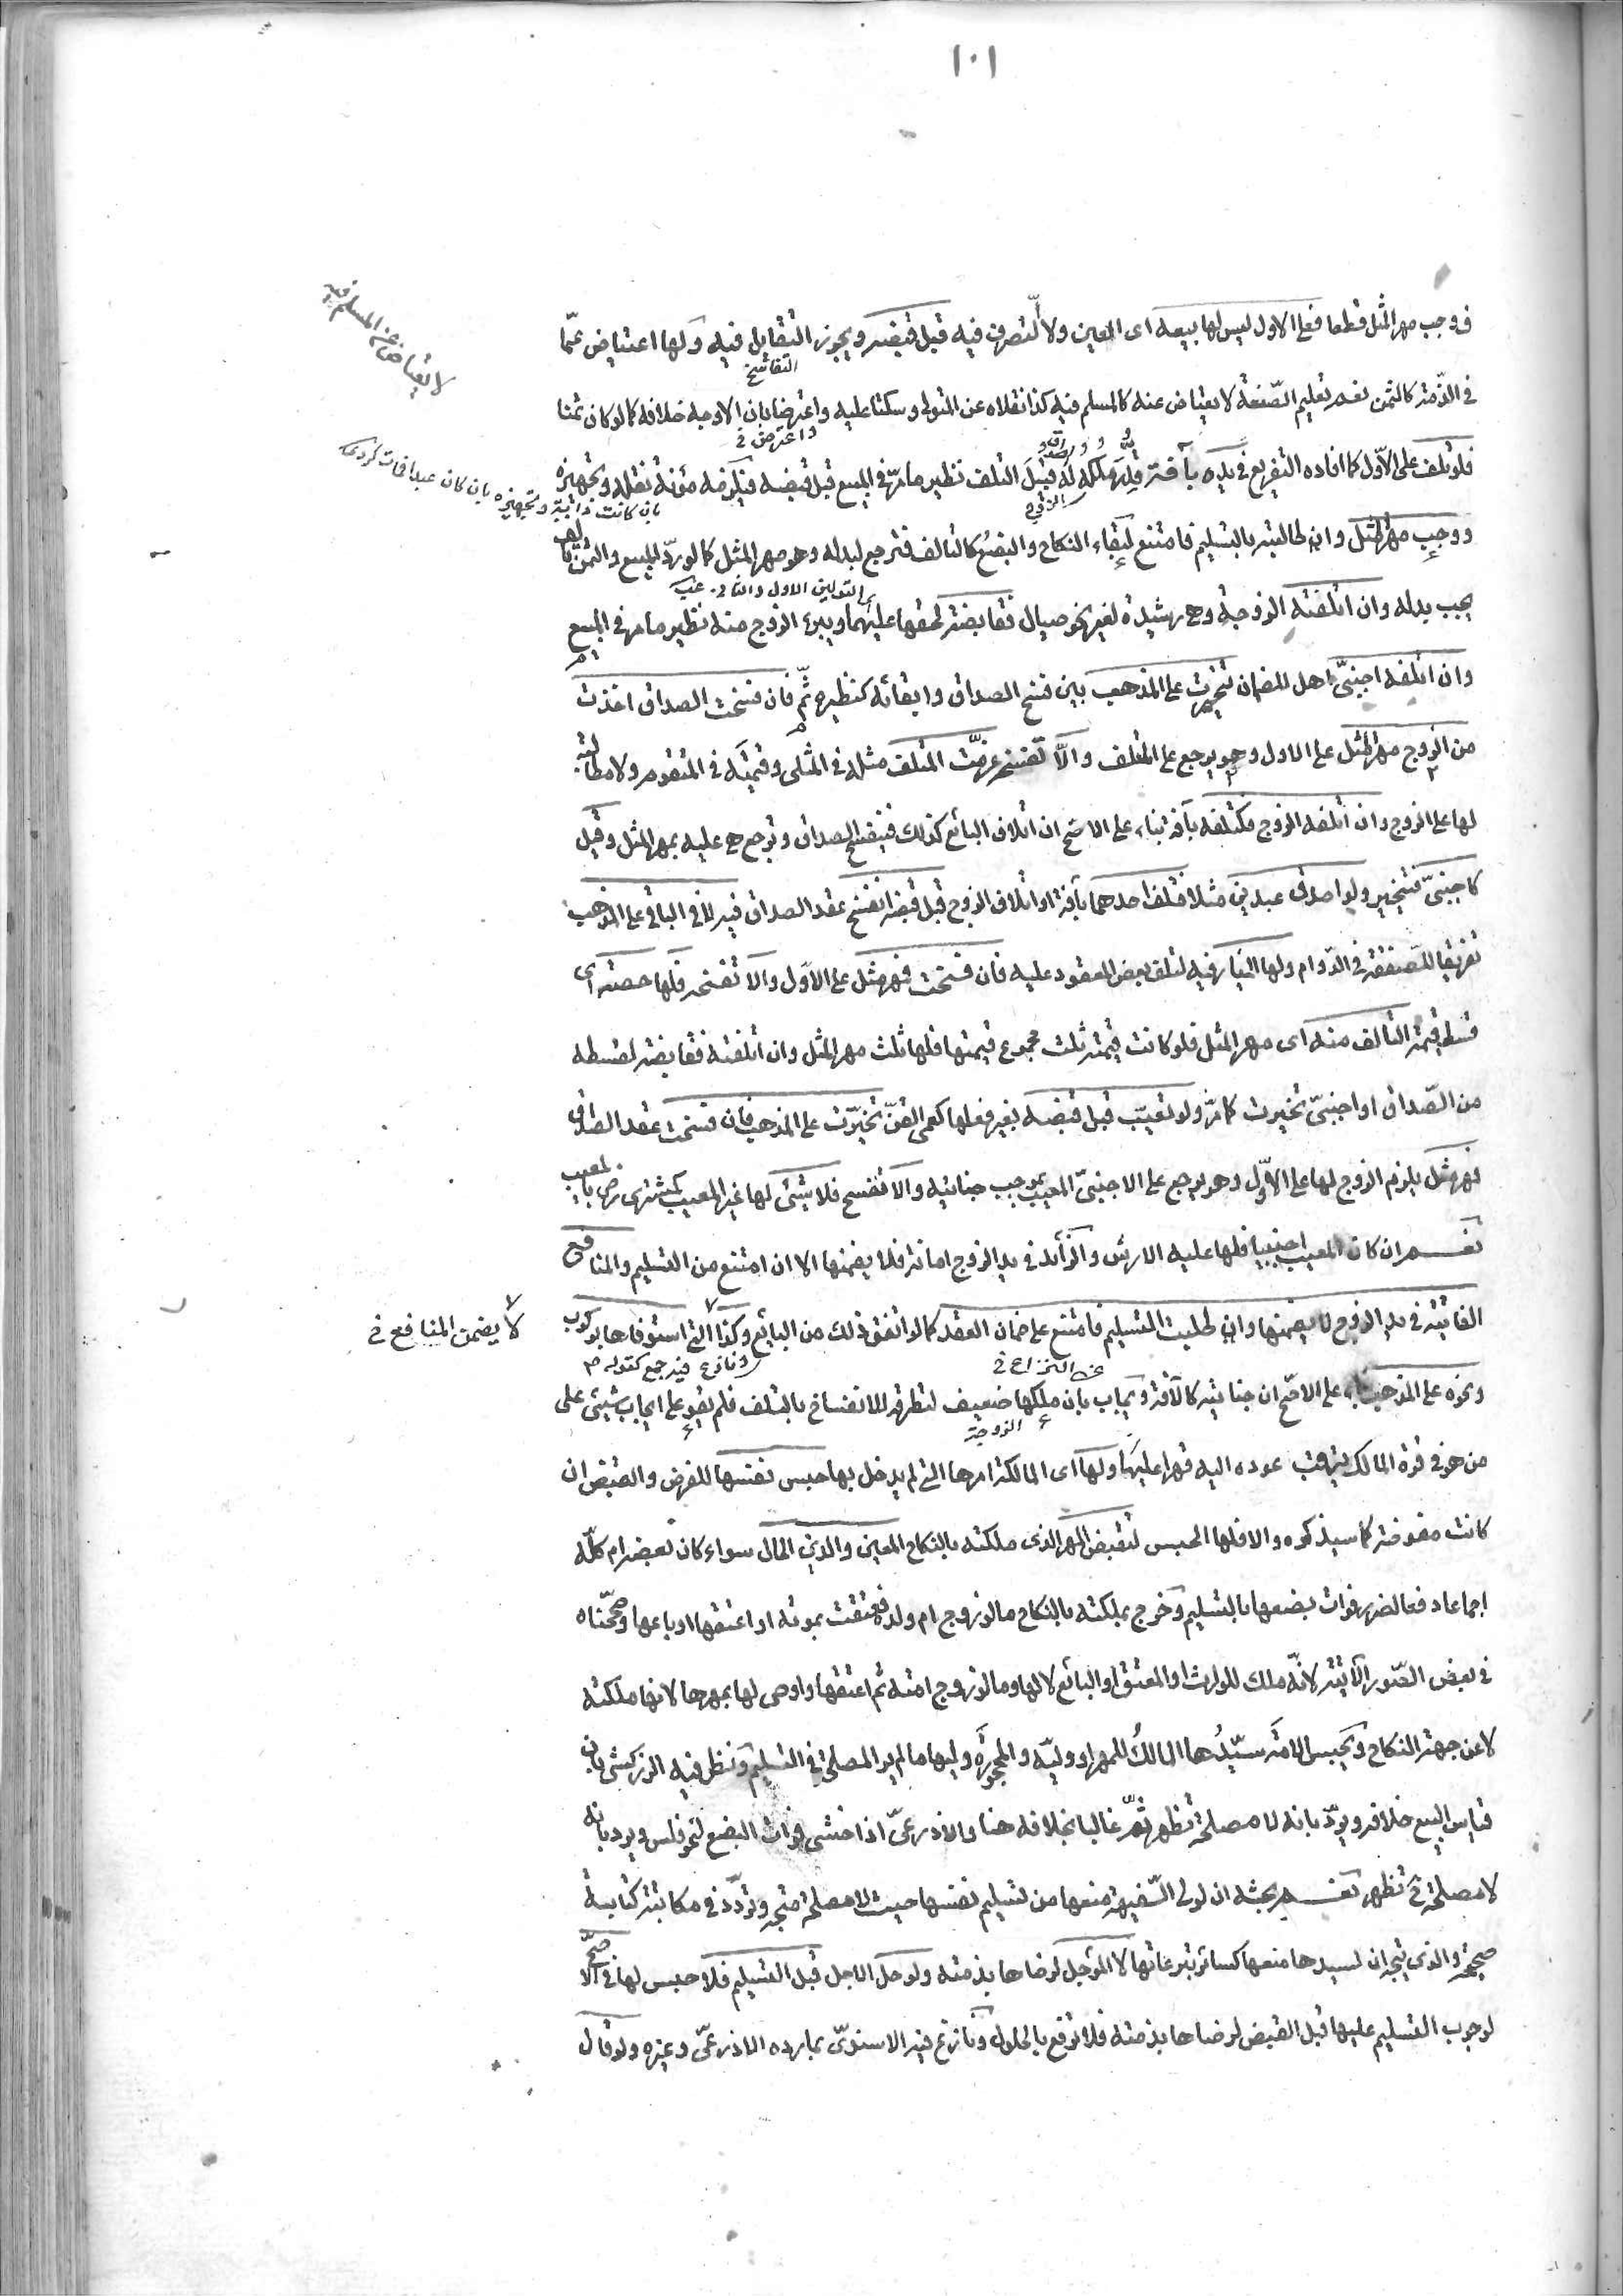 ١٠١
فوجب مهر المثل قطعا فعلى الاول ليس لها بيعه اى المعين ولا التصرف فيه قبل قبضه ويجوز التقايل فيه ولها اعتياض عمّا
التفاسخ
فى الذّمة كالثمن نعم تعليم الصّنعة لا يعتاض عنه كالمسلم فيه كذا نقلاه عن المتولى وسكتا عليه واعترضا بان الاوجه خلافه كما لو كان ثمنا
لا يعتاض عن المسلم فيه
فلو تلف على الاوّل كما افاده التفريع فى يده بآفة قدّر ملكه له قبيل التلف نظير ما مرّ فى المبيع قبل قبضه فيلزمه مؤنة نقله وتجهيزه
بان كانت دابة وتجهيزه بان كان عبدا فمات كردى
ووجب مهر مثل وان طالبته بالتسليم فامتنع لبقاء النكاح والبضع كالتالف فترجع لبدله وهو مهر المثل كما لو ردّ المبيع والثمن تالف
يجب بدله وان اتلفته الزوجة وهى رشيدة لغير نحو صيال فقابضة لحقها عليهما ويبرء الزوج منه نظير ما مر فى المبيع
وان اتلفه اجنبىّ اهل للضمان تخيرت على المذهب بين فسخ الصداق وابقائه كنظيره ثمّ فان فسخت الصداق اخذت
من الزوج مهر المثل على الاول وهو يرجع على المتلف والاّ تفسخه غرّمت المتلف مثله فى المثلى وقيمته فى المتقوم ولا مطالبة
لها على الزوج وان اتلفه الزوج فكتلفه بآفة بناء على الاصح ان اتلاف البائع كذلك فينفسخ الصداق وترجع هى عليه بمهر المثل وقيل
كاجنبىّ فتتخير ولو اصدق عبدين مثلا فتلف احدهما بآفة او اتلاف الزوج قبل قبضه انفسخ عقد الصداق فيه لا فى الباقى على المذهب
تفريقا للصفقة فى الدّوام ولها الخيار فيه لتلف بعض المعقود عليه فان فسخت فمهر مثل على الاوّل والاّ تفسخه فلها حصته اى
قسط قيمة التالف منه اى مهر المثل فلو كانت قيمته ثلث مجموع قيمتها فلها ثلث مهر المثل وان اتلفته فقابضة لقسطه
من الصّداق او اجنبىّ تخيرت كما مرّ ولو تعيّب قبل قبضه بغير فعلها كعمى القنّ تخيّرت على المذهب فان فسخت عقد الصداق
فمهر مثل يلزم الزوج لها على الاوّل وهو يرجع على الاجنبىّ المعيب بموجب جنايته والاّ تفسخ فلا شئ لها غير المعيب كمشترى رضى بالعيب
نعم ان كان المعيب اجنبيا فلها عليه الارش والزائد فى يد الزوج امانة فلا يضمنها الا ان امتنع من التسليم والمنافع
الفائتة فى يد الزوج لا يضمنها وان طلبت التسليم فامتنع على ضمان العقد كما لو اتفق ذلك من البائع وكذا التى استوفاها بركوب
لا يضمن المنافع
ونحوه على المذهب بناء على الاصحّ ان جنايته كالآفة ويجاب بان ملكها ضعيف لتطرقه للانفساخ بالتلف فلم يقو على ايجاب شئ على
الزوجة
من هو فى قوة المالك بترقب عوده اليه قهرا عليها ولها اى المالكة امرها التى لم يدخل بها حبس نفسها للفرض والقبض ان
كانت مفوضة كما سيذكره والا فلها الحبس لتقبض المهر الذى ملكته بالنكاح المعين والدين الحال سواء كان بعضه ام كلّه
اجماعا دفعا لضرر فوات بضعها بالتسليم وخرج بملكته بالنكاح ما لو زوج ام ولده فعتقت بموته او اعتقها او باعها وصححناه
فى بعض الصّور الآتية لانّه ملك للوارث او المعتق او البائع لا لها وما لو زوج امته ثم اعتقها واوصى لها بمهرها لانها ملكته
لا عن جهة النكاح ويحبس الامة سيّدها المالك للمهر او وليّه والمحجورة وليها ما لم ير المصلحة فى التسليم ونظر فيه الزركشى بان
قياس البيع خلافه ويردّ بانه لا مصلحة تظهر ثمّ غالبا بخلافه هنا والاذرعىّ اذا خشى فوات البضع لنحو فلس ويرد بانه
لا مصلحة ح تظهر نعم بحثه ان لولى السّفيهة منعها من تسليم نفسها حيث لا مصلحة متجه وتردّد فى مكاتبة كتابة
صحيحة والذى يتجه ان لسيدها منعها كسائر تبرعاتها لا المؤجل لرضاها بذمته ولو حل الاجل قبل التسليم فلا حبس لها فى الاصحّ
لوجوب التسليم عليها قبل القبض لرضاها بذمته فلا ترفع بالحلول ونازع فيه الاسنوىّ بما رده الاذرعىّ وغيره ولو قال